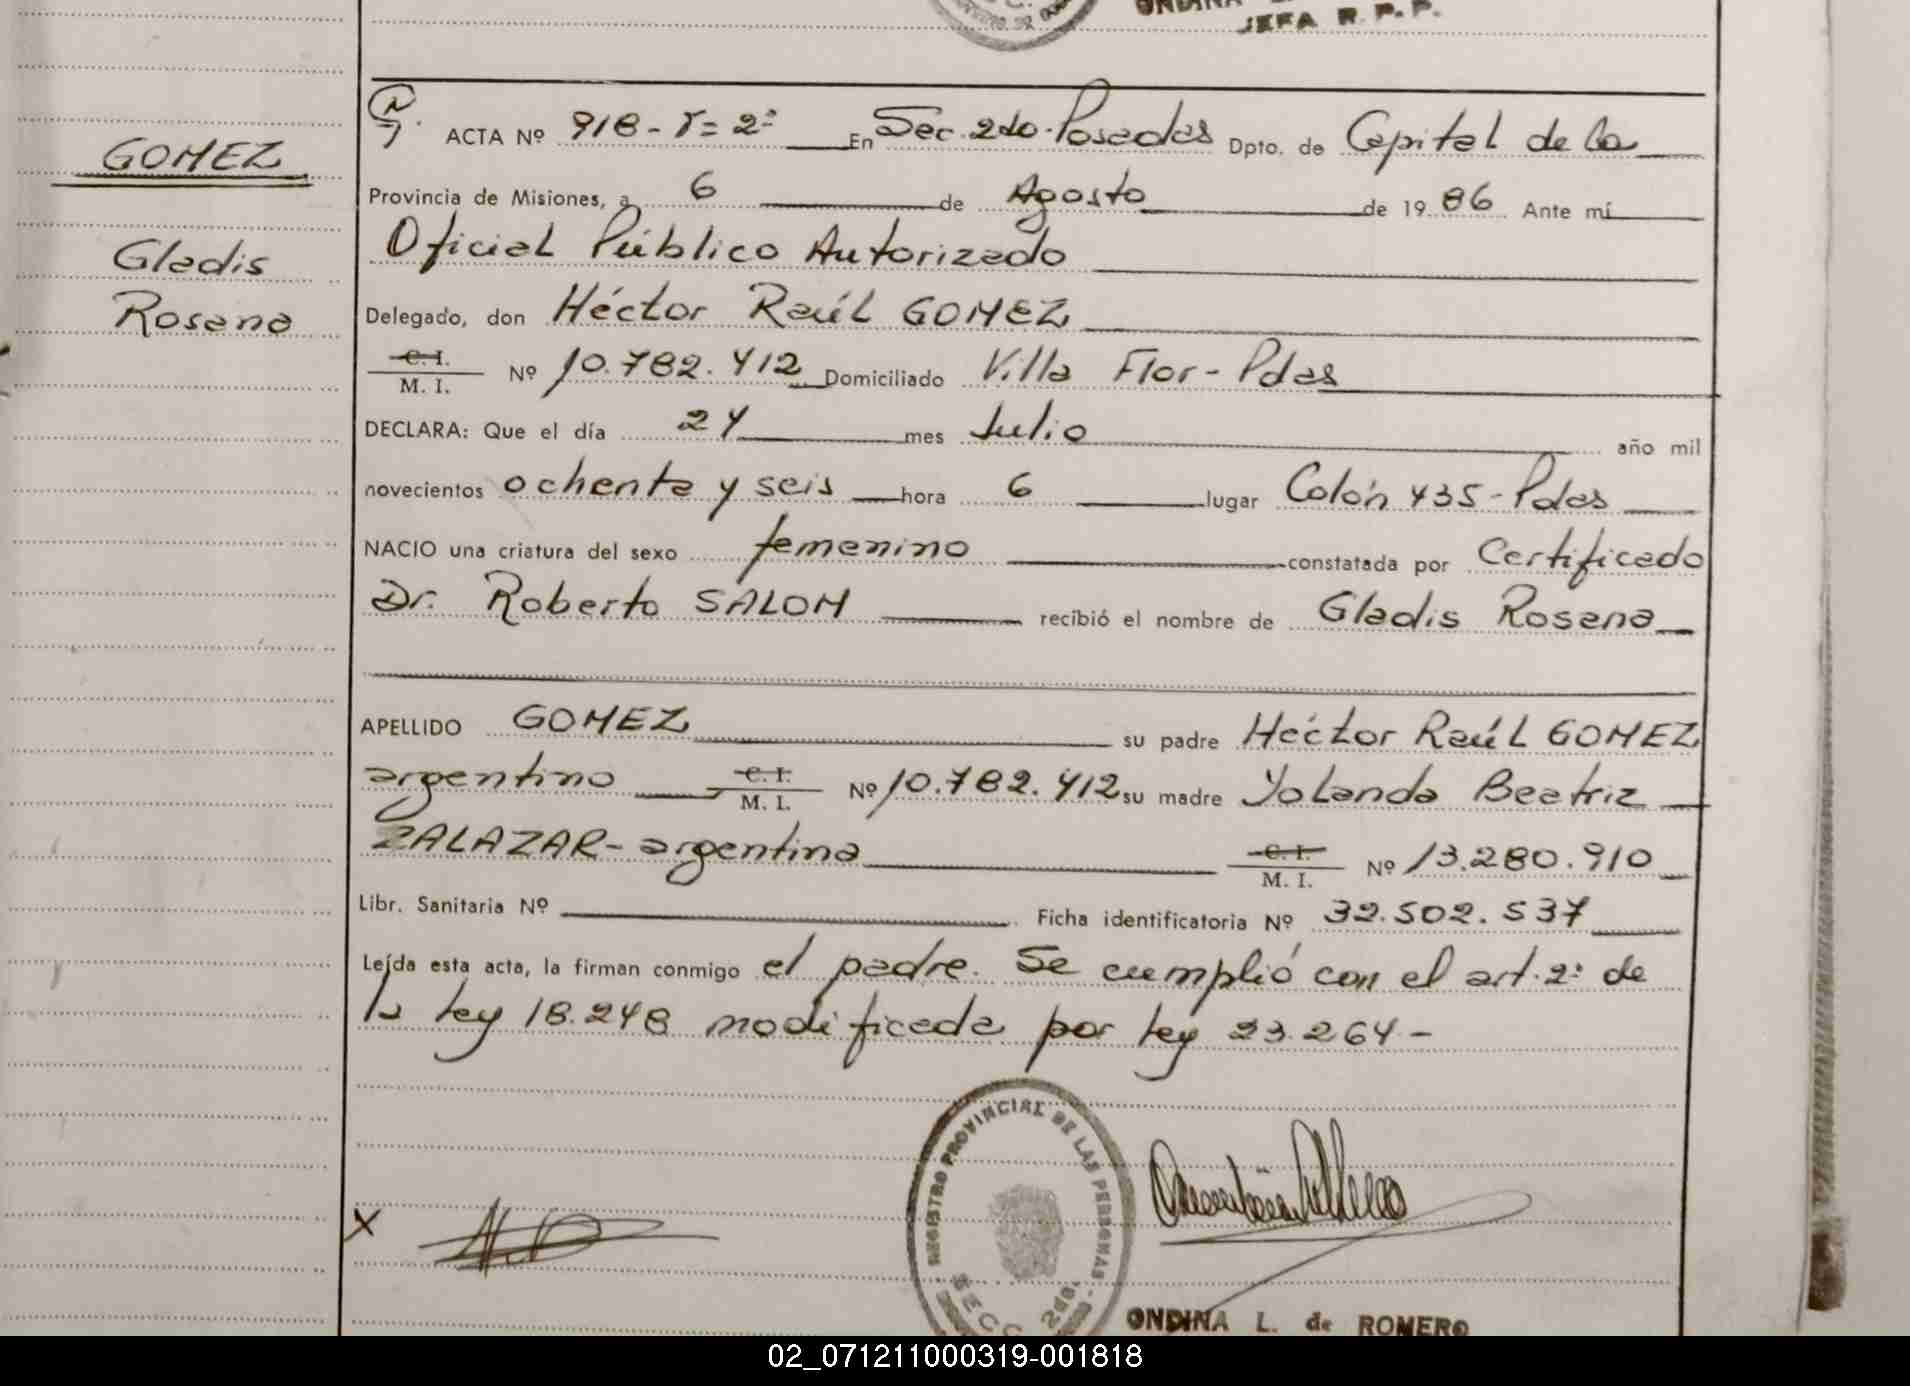 JEFA R. P. P.
ACTA Nº 918 - T= 2º En Sec. 2do. Posadas Dpto. de Capital de la
GOMEZ
Provincia de Misiones, a 6 de Agosto de 1986 Ante mí
Oficial Público Autorizado
Gladis
Rosana
Delegado, don Héctor Raúl GOMEZ
C. I.
M. I. Nº 10.782.412 Domiciliado Villa Flor - Pdas
DECLARA: Que el día 24 mes Julio año mil
novecientos ochenta y seis hora 6 lugar Colón 435 - Pdas
NACIO una criatura del sexo femenino constatada por Certificado
Dr. Roberto SALOM recibió el nombre de Gladis Rosana
APELLIDO GOMEZ su padre Héctor Raúl GOMEZ
argentino C. I. M. I. Nº 10.782.412 su madre Yolanda Beatriz
ZALAZAR - argentina C. I. M. I. Nº 13.280.910
Libr. Sanitaria Nº Ficha identificatoria Nº 32.502.537
Leída esta acta, la firman conmigo el padre. Se cumplió con el art. 2º de
la ley 18.248 modificada por ley 23.264 -
REGISTRO PROVINCIAL DE LAS PERSONAS
SECC. 2da.
X
ONDINA L. de ROMERO
02_071211000319-001818